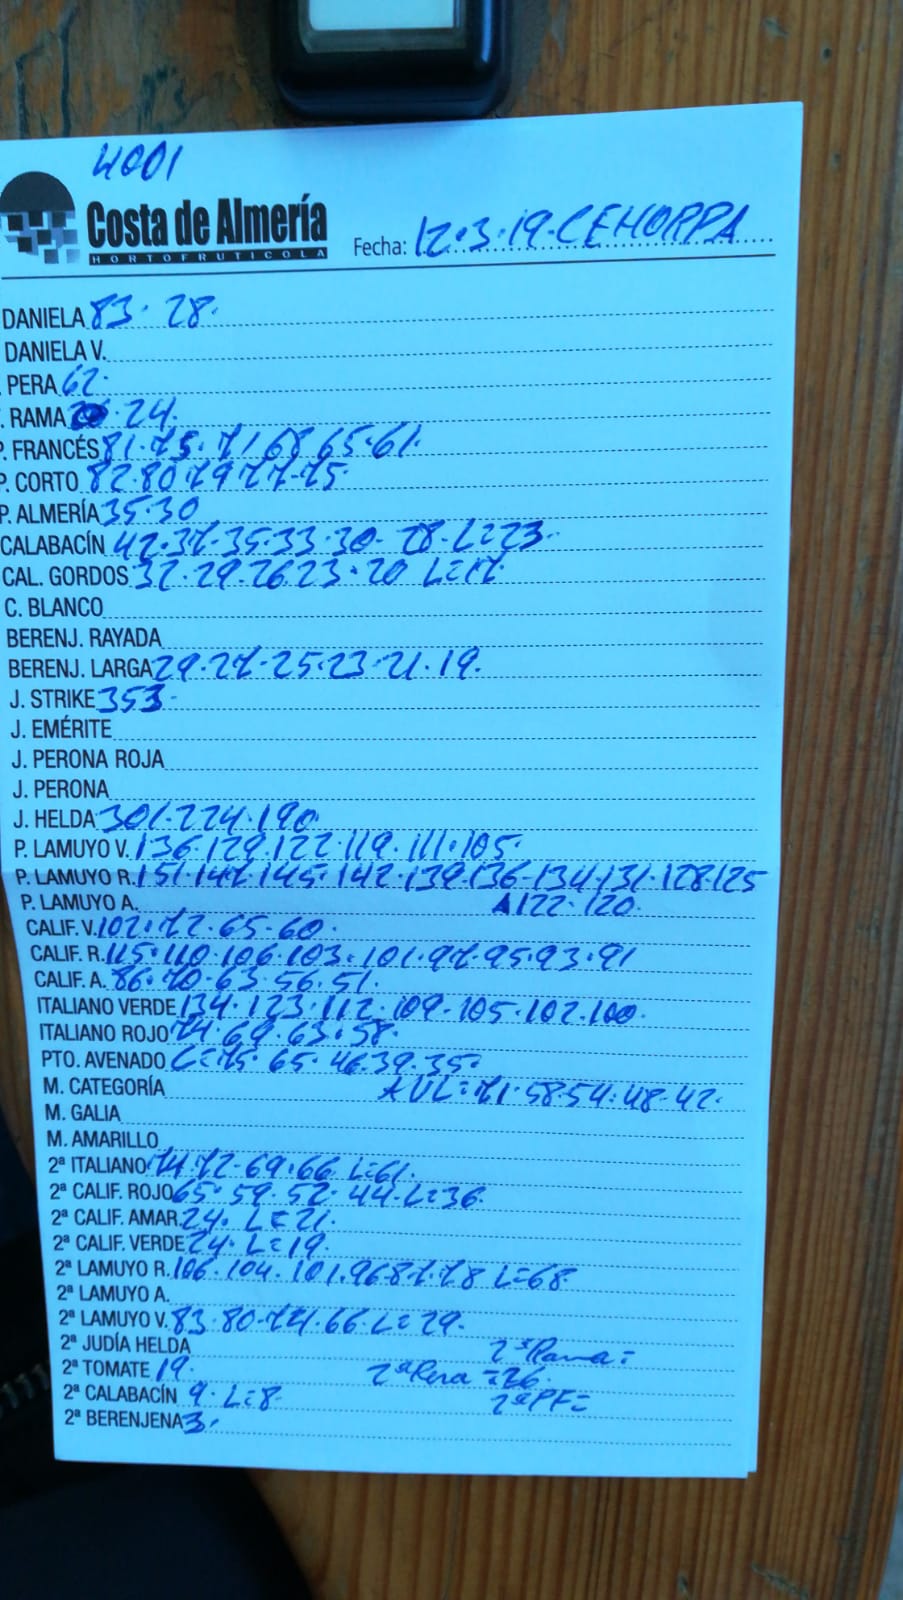 4001
Costa de Almería
HORTOFRUTICOLA
Fecha: 12.3.19. CEHORPA
DANIELA 83. 28.
DANIELA V.
PERA 62.
RAMA 24.
P. FRANCÉS 81.75.71.68.65.61.
P. CORTO 82.80.79.77.75.
P. ALMERÍA 35.30
CALABACÍN 42.37.35.33.30. 28. L=23.
CAL. GORDOS 32.29.26.23.20 L=17.
C. BLANCO
BERENJ. RAYADA
BERENJ. LARGA 29.27.25.23.21.19.
J. STRIKE 353.
J. EMÉRITE
J. PERONA ROJA
J. PERONA
J. HELDA 301.224.190.
P. LAMUYO V. 136.129.122.119.111.105.
P. LAMUYO R. 151.147.145.142.139.136.134.131.128.125
P. LAMUYO A. 122.120.
CALIF. V. 102.72.65.60.
CALIF. R. 115.110.106.103.101.97.95.93.91
CALIF. A. 86.70.63.56.51.
ITALIANO VERDE 134.123.112.109.105.102.100.
ITALIANO ROJO 74.69.63.58.
PTO. AVENADO L=75.65.46.39.35.
M. CATEGORÍA AVL=71.58.54.48.42.
M. GALIA
M. AMARILLO
2ª ITALIANO 74.72.69.66. L=61.
2ª CALIF. ROJO 65.59.52.44. L=36.
2ª CALIF. AMAR. 24. L=21.
2ª CALIF. VERDE 24. L=19.
2ª LAMUYO R. 106.104.101.96.87.78 L=68.
2ª LAMUYO A.
2ª LAMUYO V. 83.80.74.66. L=29.
2ª JUDÍA HELDA 2ª Rama=
2ª TOMATE 19. 2ª Pera=26.
2ª CALABACÍN 9. L=8. 2ª PF=
2ª BERENJENA 3.